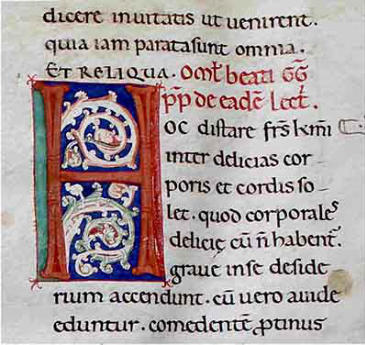 dicere inuitatis ut uenirent.
quia iam parata sunt omnia.
ET RELIQUA. Om̅l̅. beati G̅G̅
p̅p̅ de eadē Lect̅.
HOC distare fr̅s k̅m̅i
inter delicias cor-
poris et cordis so-
let. quod corporales
delicię cū n̄ habent̅.
graue in se deside
rium accendunt. cū uero auide
eduntur. comedentē ꝓtinus